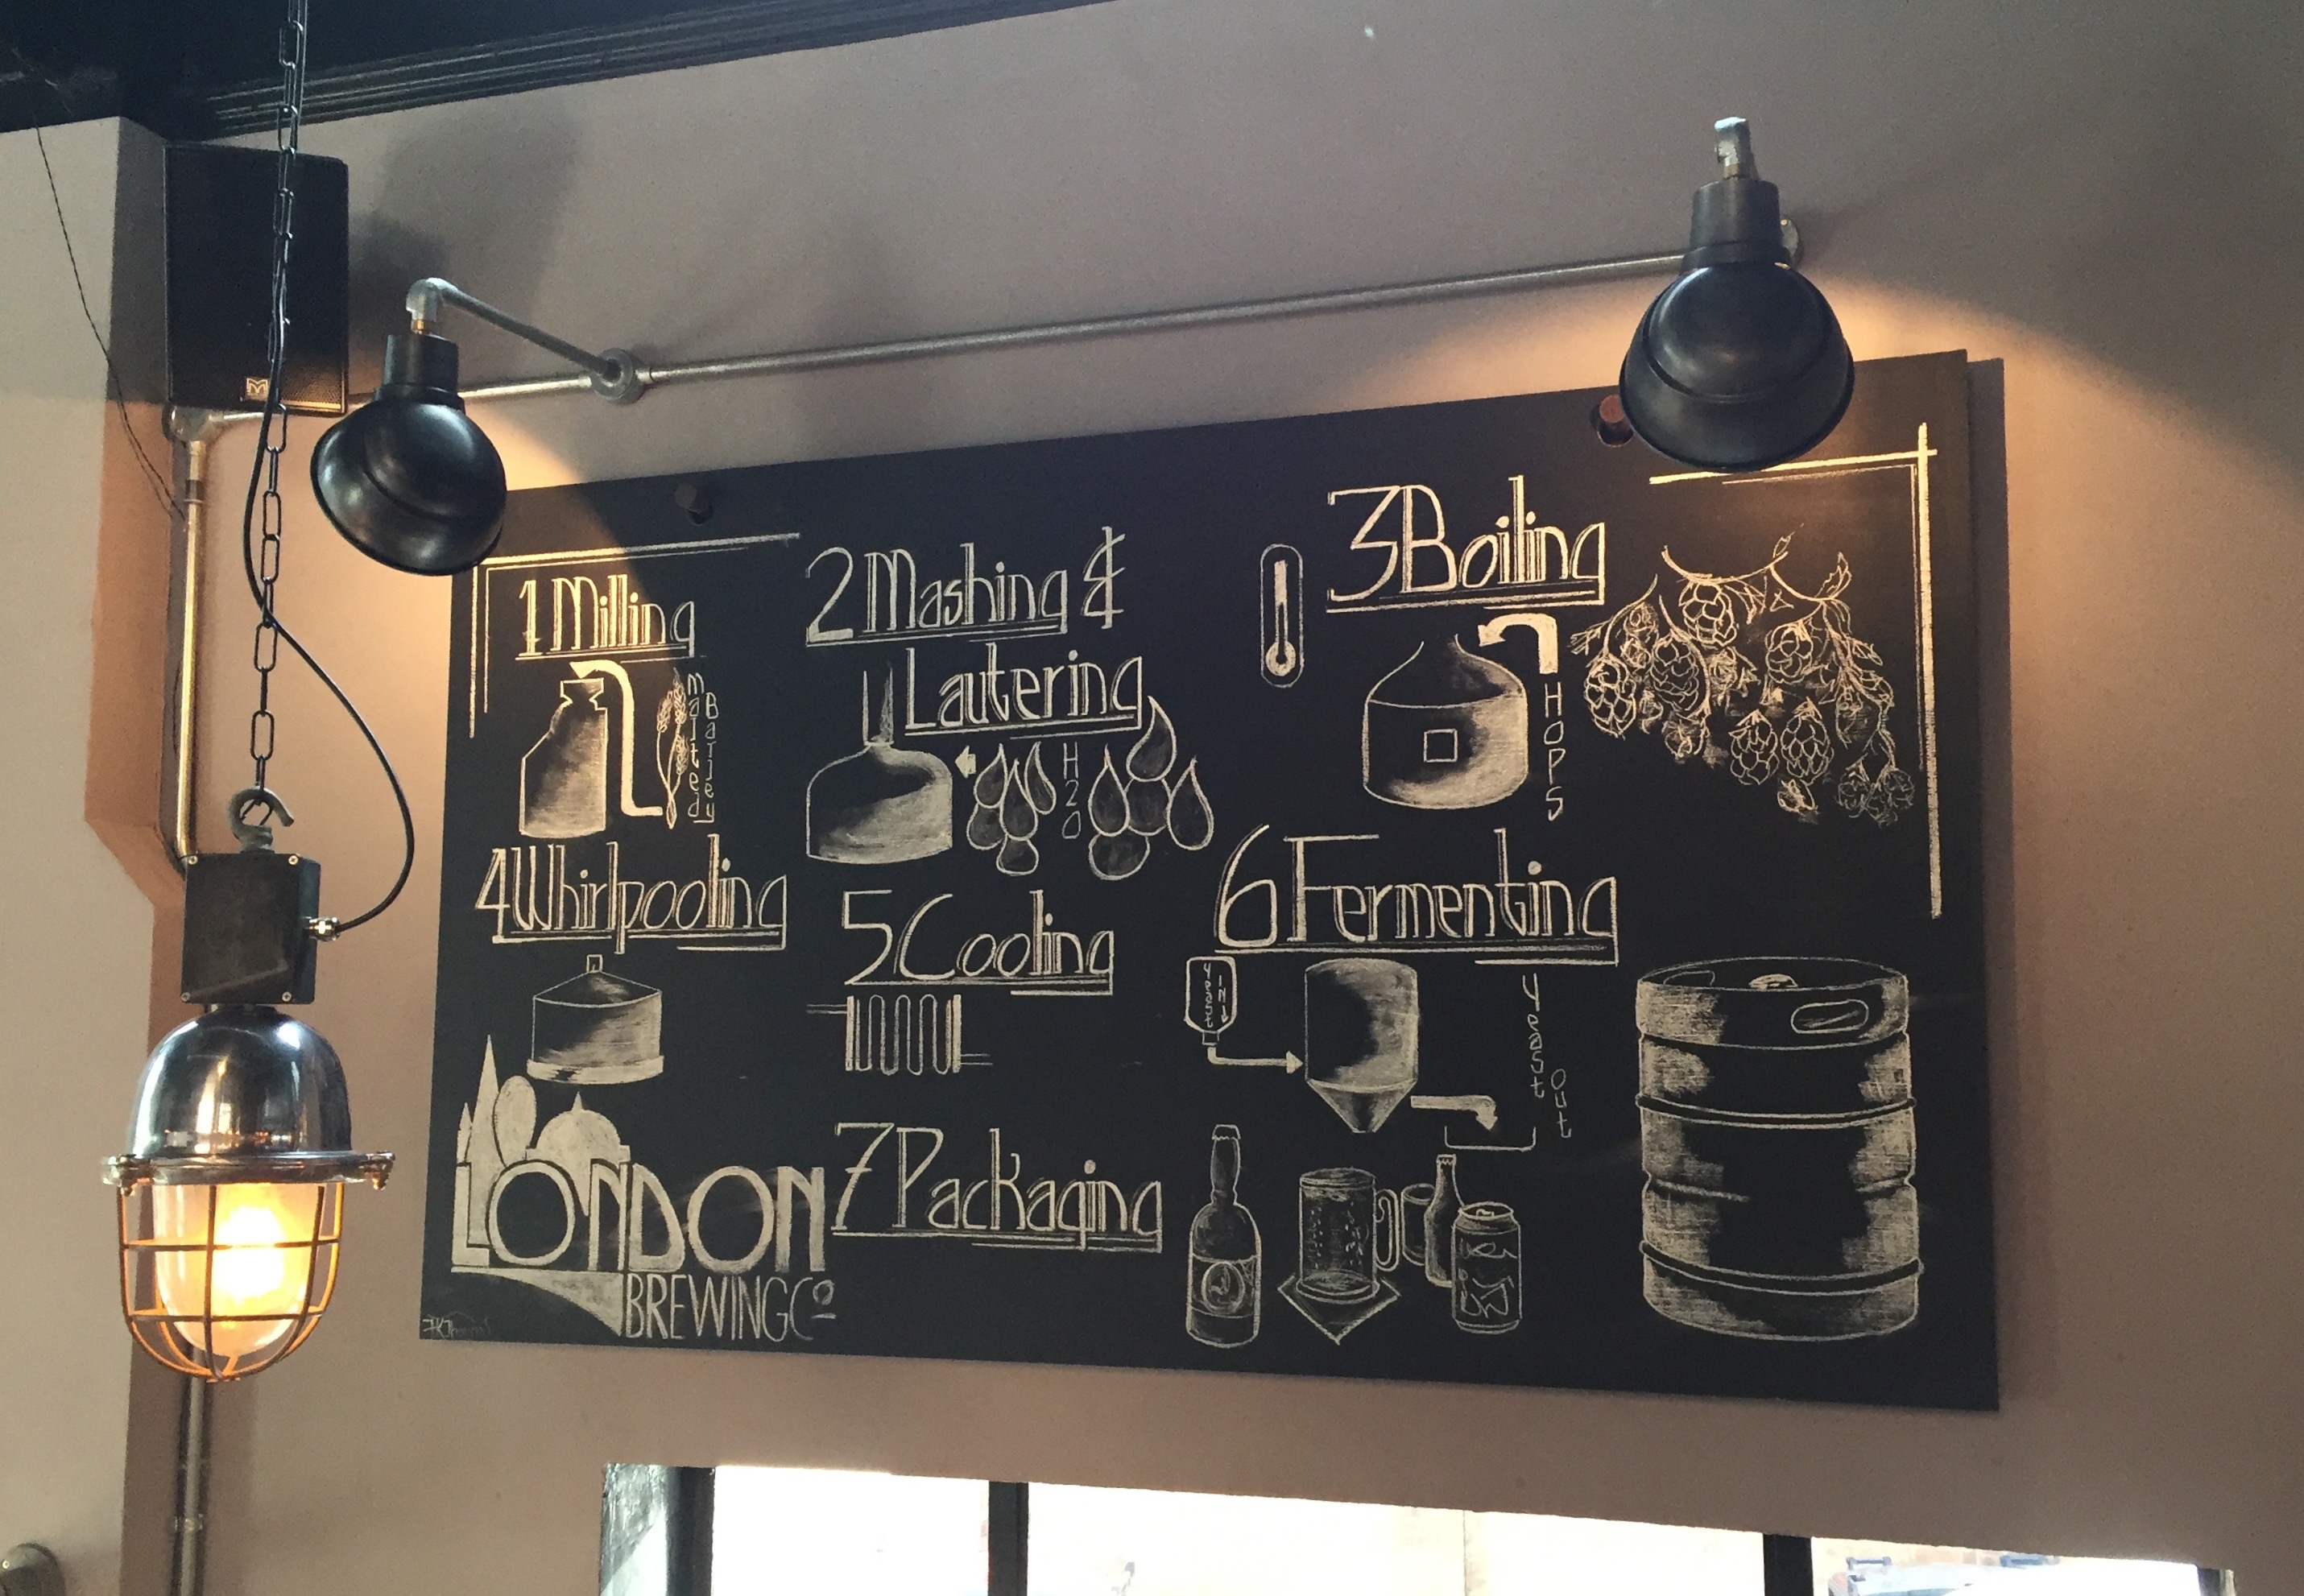 1 Milling
Malted
Barley
2 Mashing &
Lautering
H2O
3 Boiling
HOPS
4 Whirlpooling
5 Cooling
6 Fermenting
Yeast
IN
Yeast
Out
7 Packaging
LONDON
BREWING Co